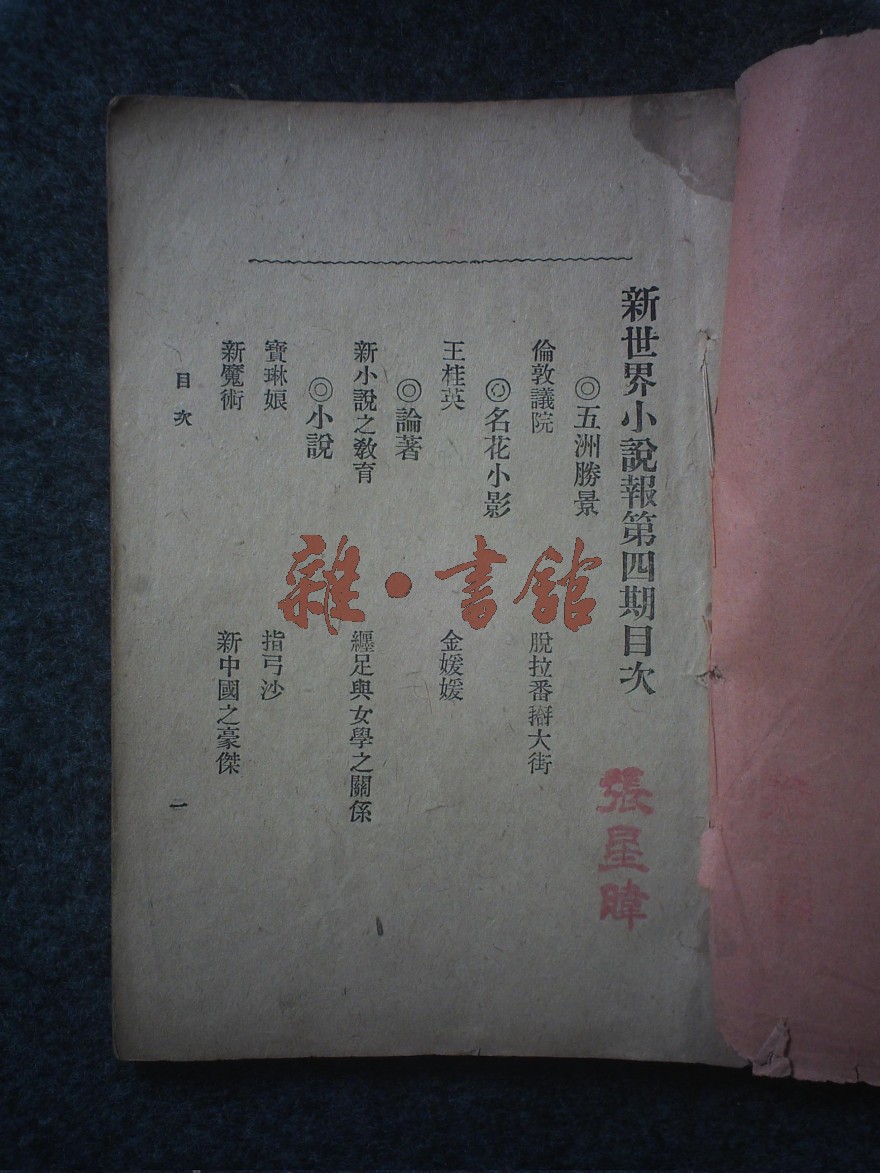 新世界小說報第四期目次
◎五洲勝景
倫敦議院 脫拉番搿大街
◎名花小影
王桂英 金媛媛
◎論著
新小說之敎育 纏足與女學之關係
◎小說
寶琳娘 指弓沙
新魔術 新中國之豪傑
目次 一
張星暐
雜·書館